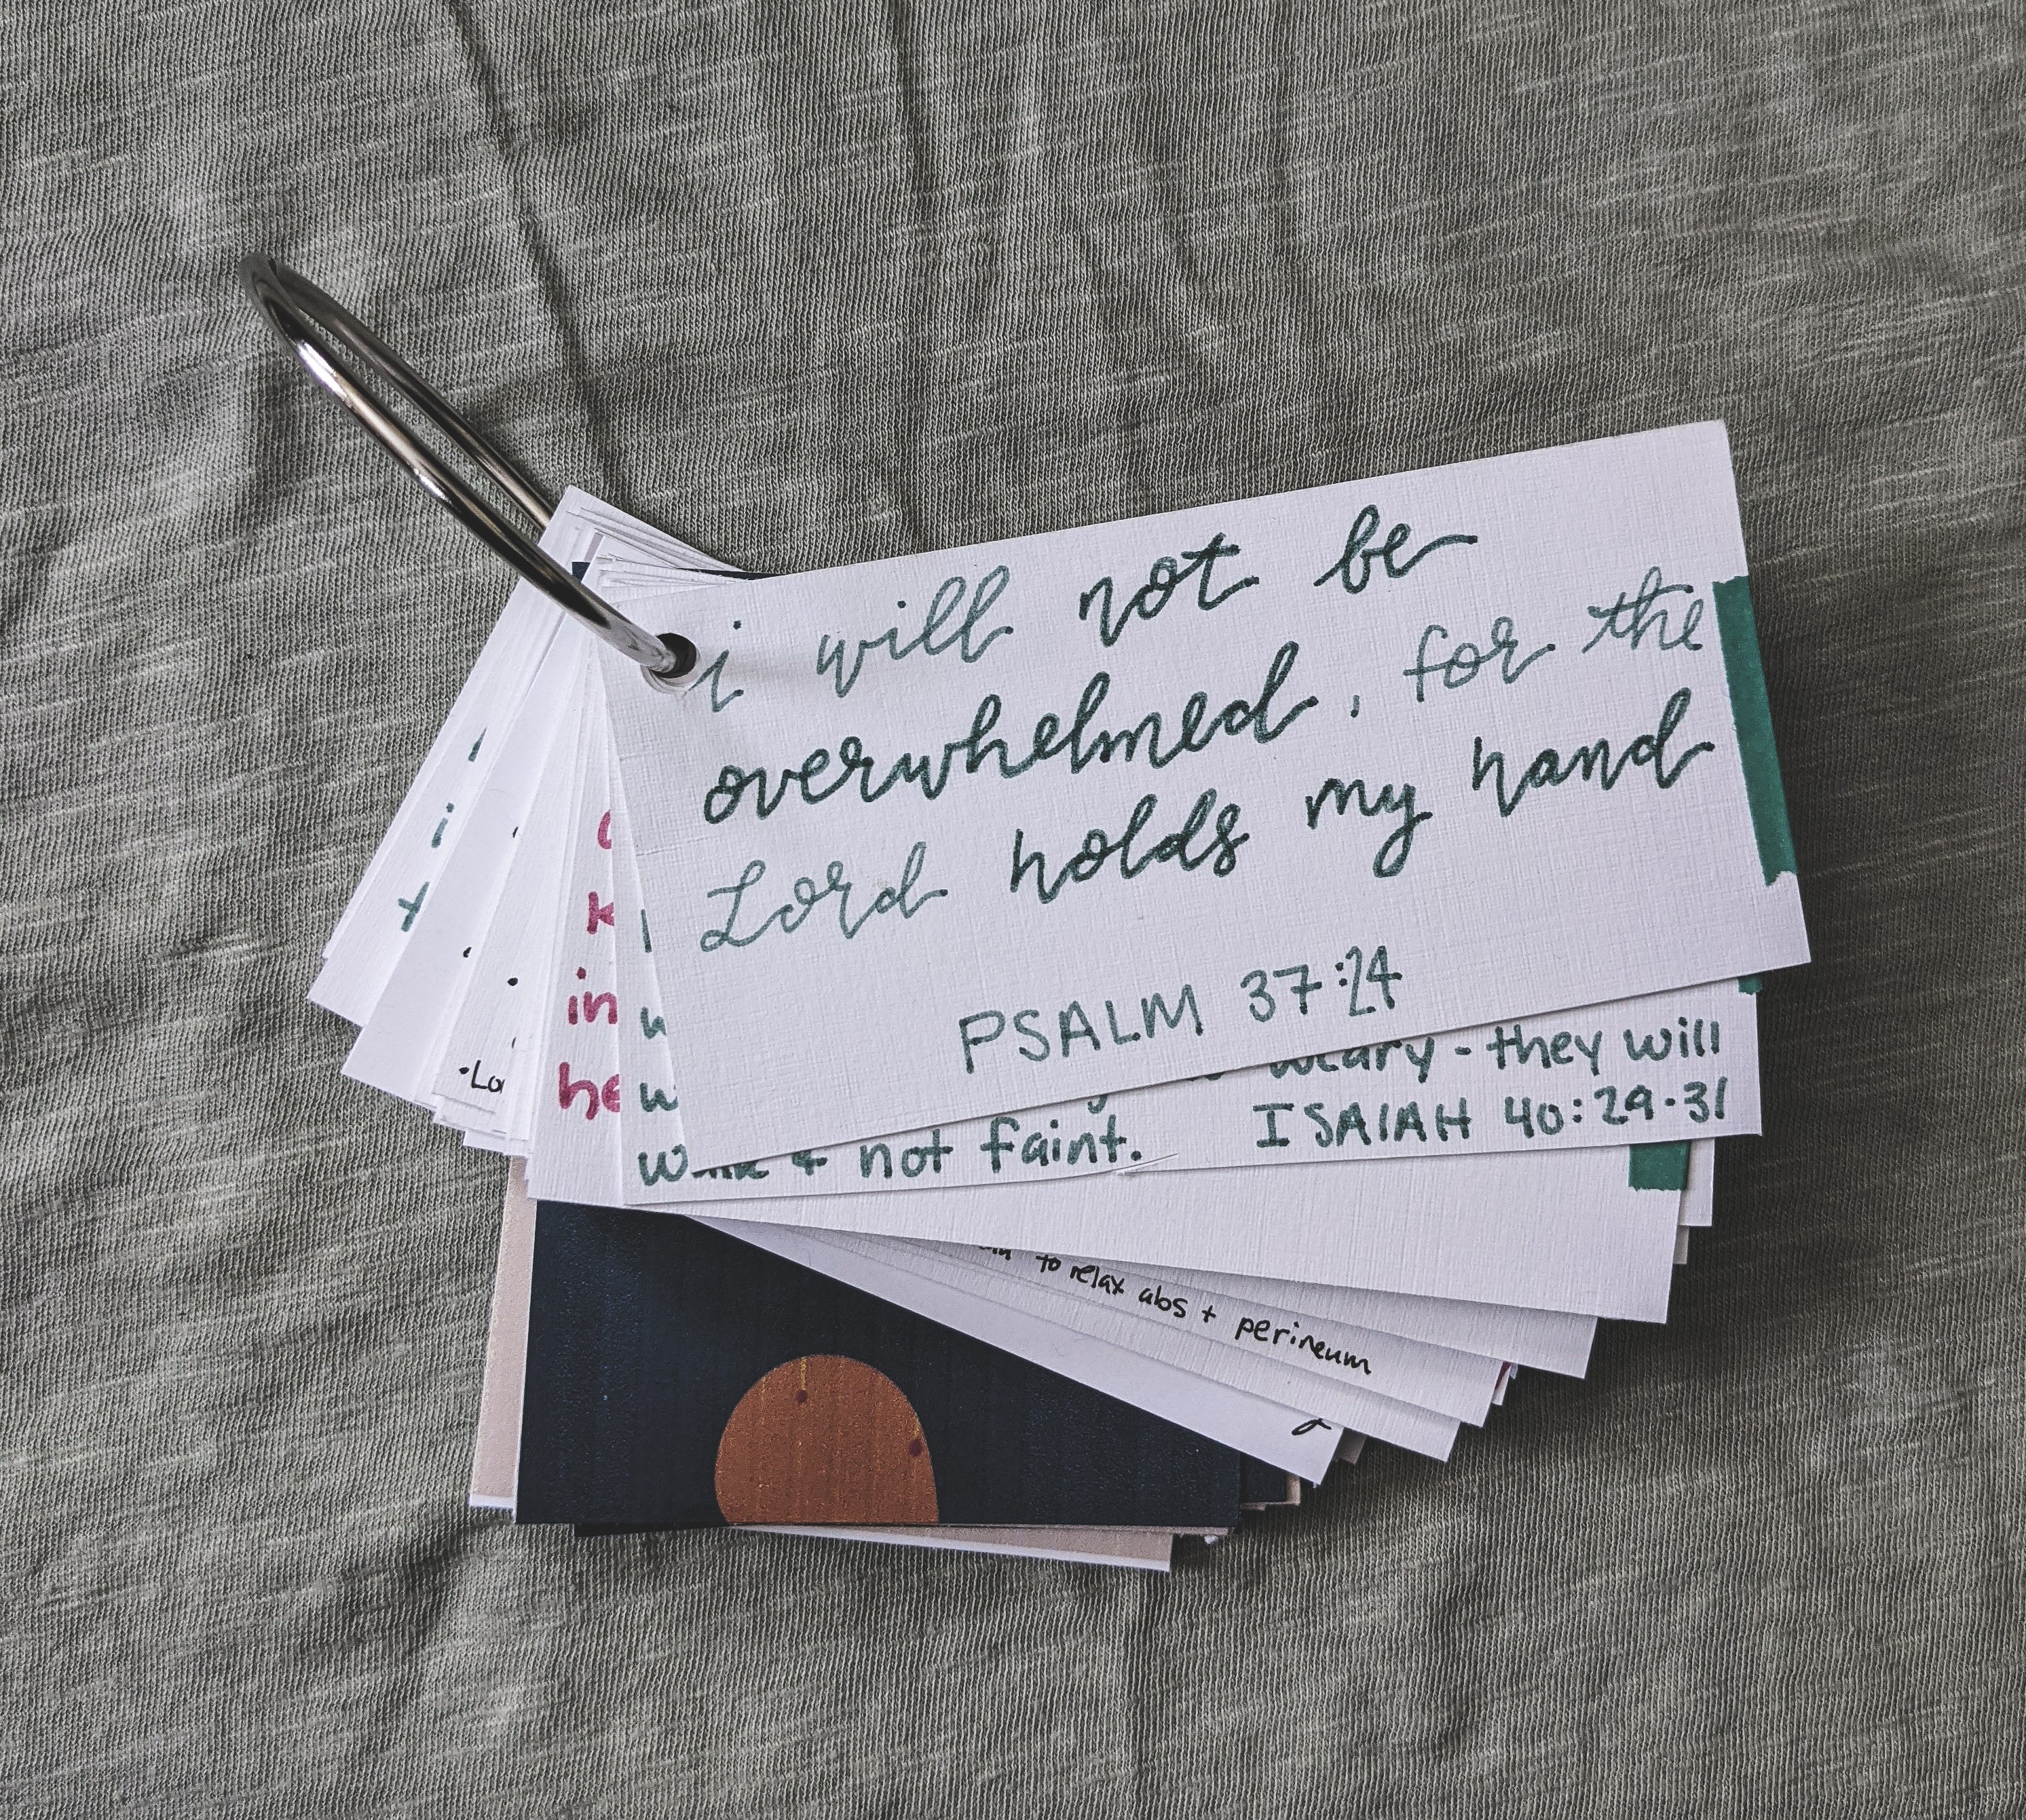 i will not be
overwhelmed, for the
Lord holds my hand
PSALM 37:24
weary - they will
walk & not faint.
ISAIAH 40:29-31
to relax abs + perineum
in
he